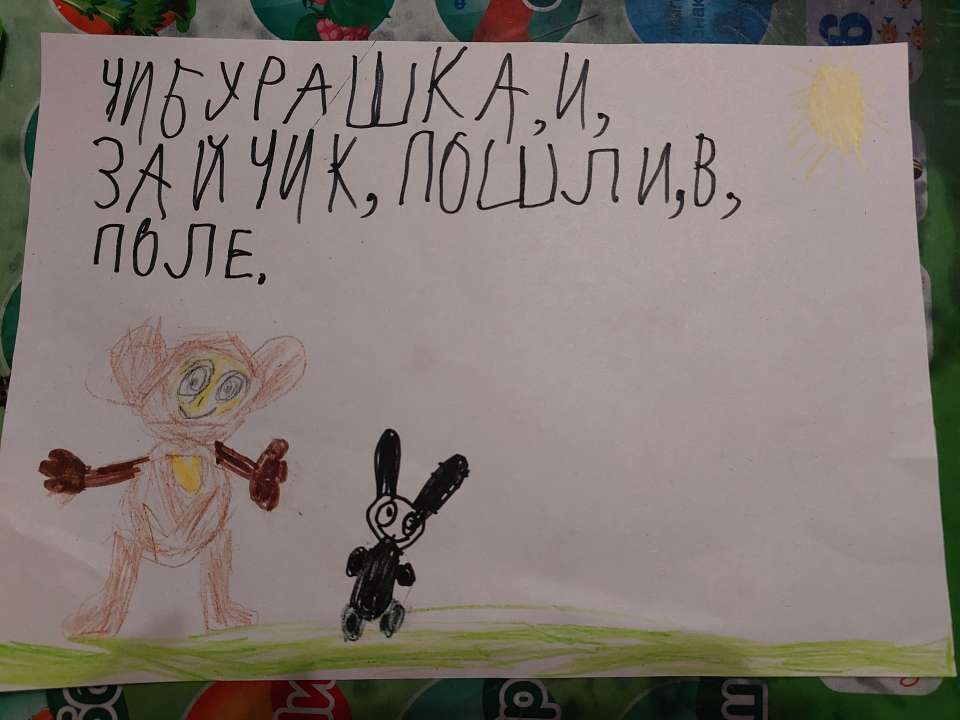 ЧИБУРАШКА, И,
ЗАЙЧИК, ПОШЛИ, В,
ПОЛЕ.